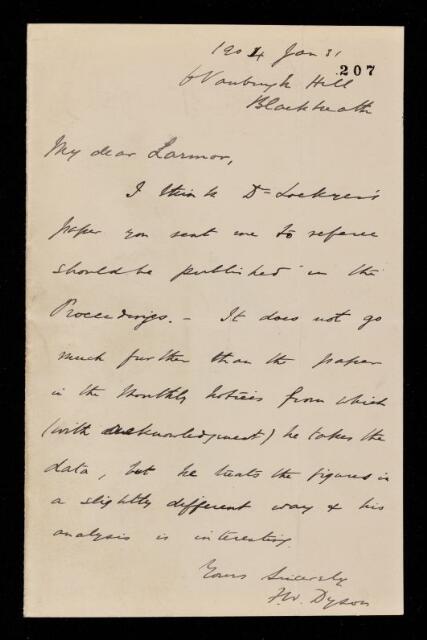 1904 Jan 31
207
6 Vanbrugh Hill
Blackheath
My dear Larmor,
I think Dr Lockyer's
paper you sent me to referee
should be published in the
Proceedings. – It does not go
much further than the paper
in the Monthly Notices from which
(with acknowledgment) he takes the
data, but he treats the figures in
a slightly different way & his
analysis is interesting.
Yours Sincerely
F.W. Dyson